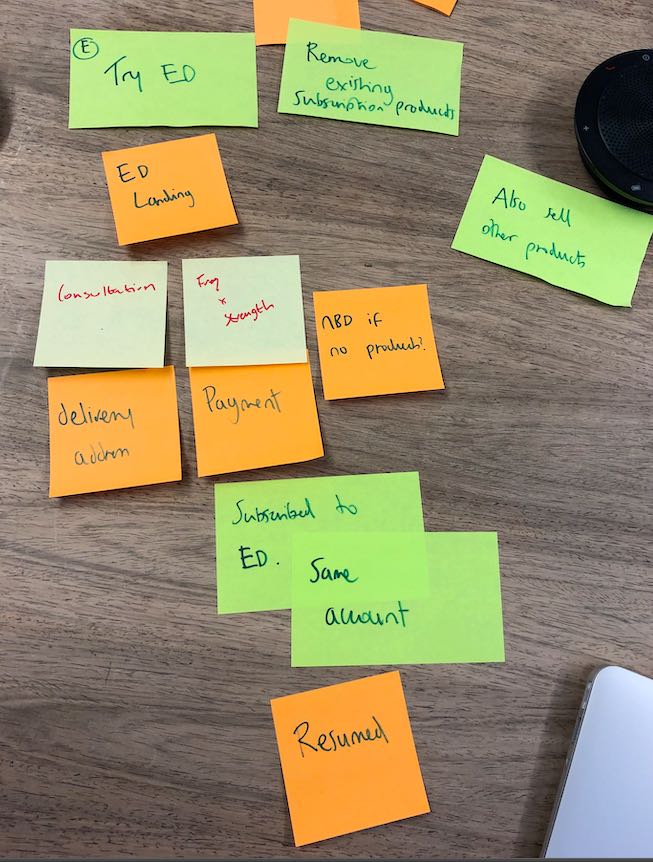 E
Try ED
Remove
existing
subscription products
ED
Landing
Also sell
other products
Consultation
Freq
x
strength
NBD if
no product?
delivery
address
Payment
Subscribed to
ED.
Same
account
Resumed